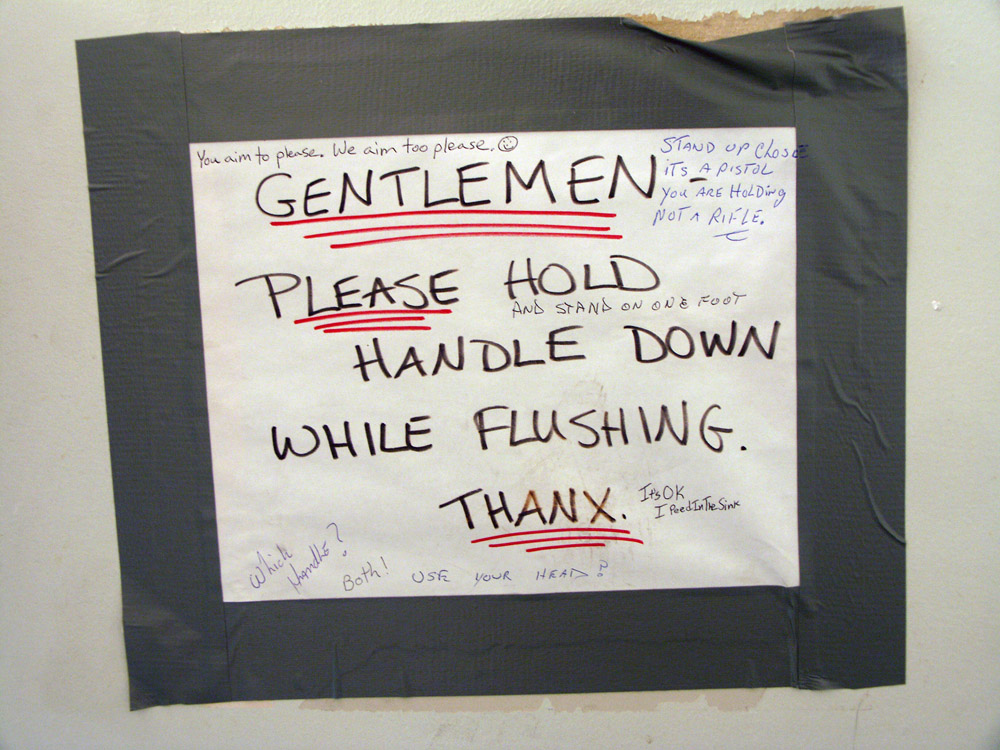 You aim to please. We aim too please. ☺
GENTLEMEN -
STAND UP CLOSE
ITS A PISTOL
YOU ARE HOLDING
NOT A RIFLE.
PLEASE HOLD
AND STAND ON ONE FOOT
HANDLE DOWN
WHILE FLUSHING.
THANX.
It's OK
I Peed In The Sink
Which
Handle?
Both!
USE YOUR HEAD?